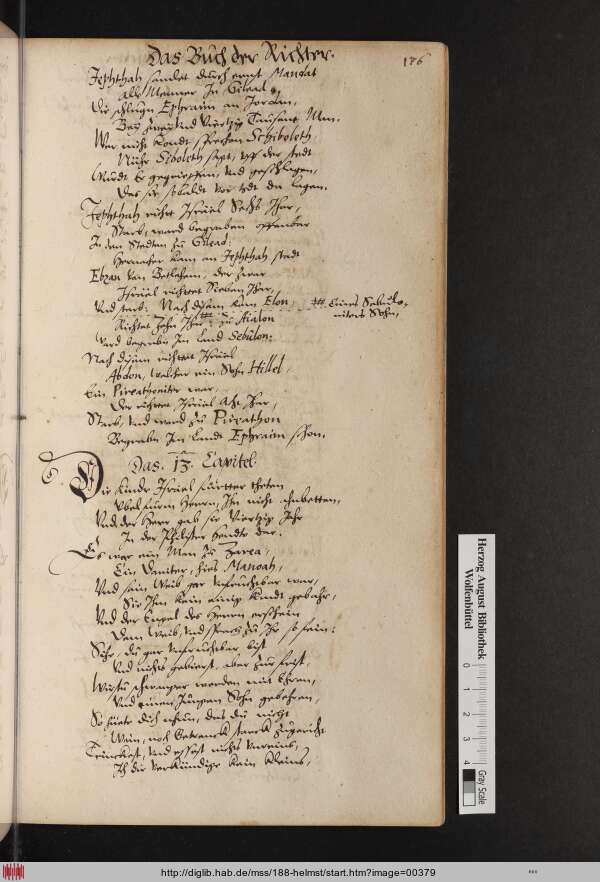 Das Buch der Richter.
186
Jephthah sandet durch ernst Mandat
Alle Menner In Gilead,
Die schlugn Ephraim an Jordan,
Bey zwey und Viertzig Tausent Man.
Wer nicht kondt sprechen Schiboleth,
Nuhr Siboleth sagt, der stedt
Wurdt Er gegriffen, und geschlagen,
Das sie todt da lagen.
Jephthah richt Israel Sechs Jhar,
Starb, ward begraben offenbar
In den Stedten zu Gilead:
Hernacher kam an Jephthah stadt
Ebzan von Betlehem, der zwar
Israel richtet Sieben Jhar,
Und starb: Nach dysem kam Elon,
Eines Sebulo-
niters Sohn,
Richtet Zehn Jhar: zu Aialon
Ward begraben In Land Sebulon:
Nach dysem richtet Israel
Abdon, welcher ein Sohn Hillel,
Ein Pireathoniter war,
Der richtet Israel Acht Jhar,
Starb, und ward zu Pireathon
Begraben Im Lande Ephraim schon.
Das. 13. Capitel.
Die Kinder Israel theten
Ubel furm Herrn, Ihn nicht anbetten,
Und der Herr gab sie Viertzig Jahr
In der Philister Hendte dar.
Es war ein Man zu Zarea,
Ein Daniter, hies Manoah,
Und sein Weib gar Unfruchtbar war,
Sie Ihm kein einig Kindt gebahr,
Und der Engel des Herrn erschein
Dem Weib, und sprach zu Ihr so fein:
Sihe, du gar Unfruchtbar bist
Und nichts gebierst, aber zur frist,
Wirstu schwanger werden mit Ehren,
Und einen Jungen Sohn gebehren,
So huete dich nhun, das du nicht
Wein, noch Getrenck starck zugericht
Trinckest, und essest nichts Unreins,
Ich dir verkundige kein kleins,
Herzog August Bibliothek
Wolfenbüttel
0 1 2 3 4
Gray Scale
http://diglib.hab.de/mss/188-helmst/start.htm?image=00379